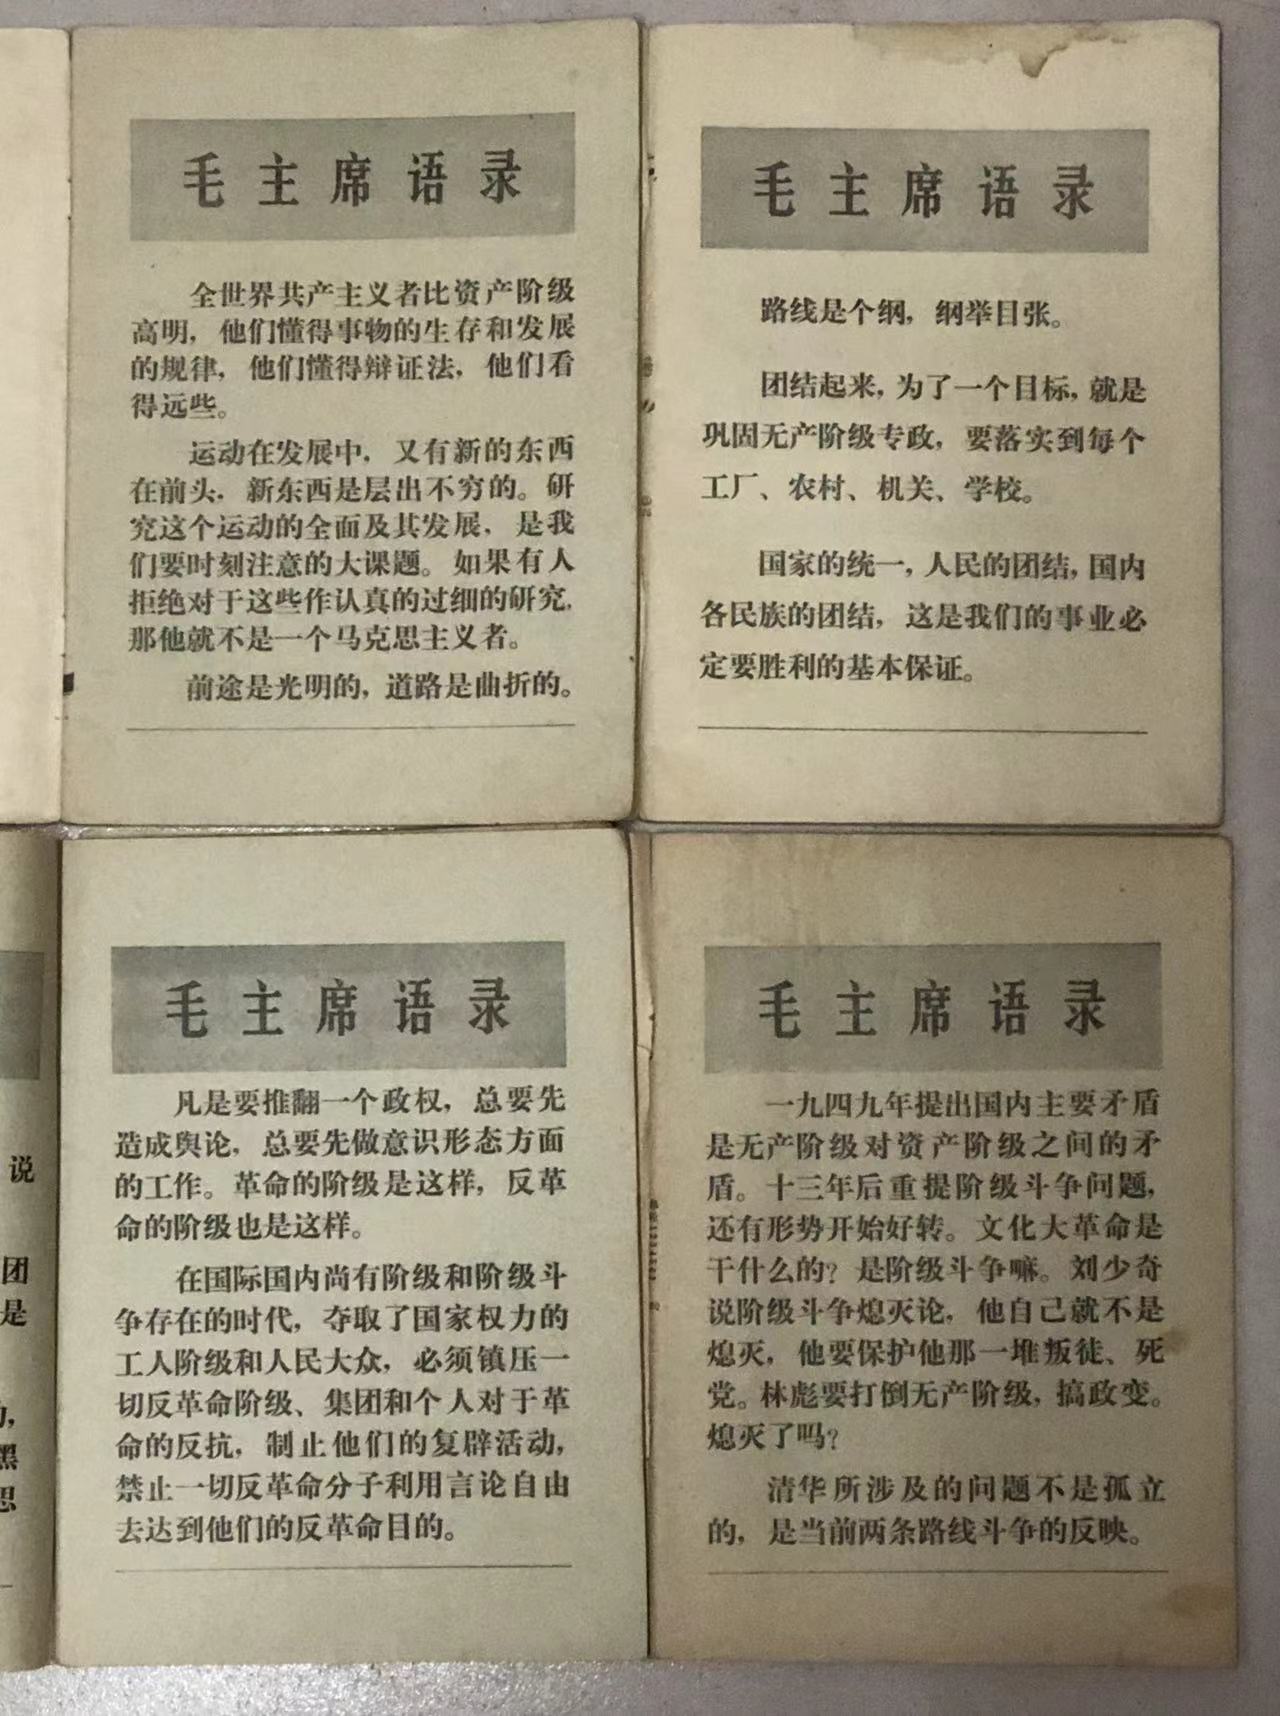 毛主席语录
全世界共产主义者比资产阶级
高明，他们懂得事物的生存和发展
的规律，他们懂得辩证法，他们看
得远些。
运动在发展中，又有新的东西
在前头，新东西是层出不穷的。研
究这个运动的全面及其发展，是我
们要时刻注意的大课题。如果有人
拒绝对于这些作认真的过细的研究，
那他就不是一个马克思主义者。
前途是光明的，道路是曲折的。
毛主席语录
路线是个纲，纲举目张。
团结起来，为了一个目标，就是
巩固无产阶级专政，要落实到每个
工厂、农村、机关、学校。
国家的统一，人民的团结，国内
各民族的团结，这是我们的事业必
定要胜利的基本保证。
说
团
是
黑
思
毛主席语录
凡是要推翻一个政权，总要先
造成舆论，总要先做意识形态方面
的工作。革命的阶级是这样，反革
命的阶级也是这样。
在国际国内尚有阶级和阶级斗
争存在的时代，夺取了国家权力的
工人阶级和人民大众，必须镇压一
切反革命阶级、集团和个人对于革
命的反抗，制止他们的复辟活动，
禁止一切反革命分子利用言论自由
去达到他们的反革命目的。
毛主席语录
一九四九年提出国内主要矛盾
是无产阶级对资产阶级之间的矛
盾。十三年后重提阶级斗争问题，
还有形势开始好转。文化大革命是
干什么的？是阶级斗争嘛。刘少奇
说阶级斗争熄灭论，他自己就不是
熄灭，他要保护他那一堆叛徒、死
党。林彪要打倒无产阶级，搞政变。
熄灭了吗？
清华所涉及的问题不是孤立
的，是当前两条路线斗争的反映。